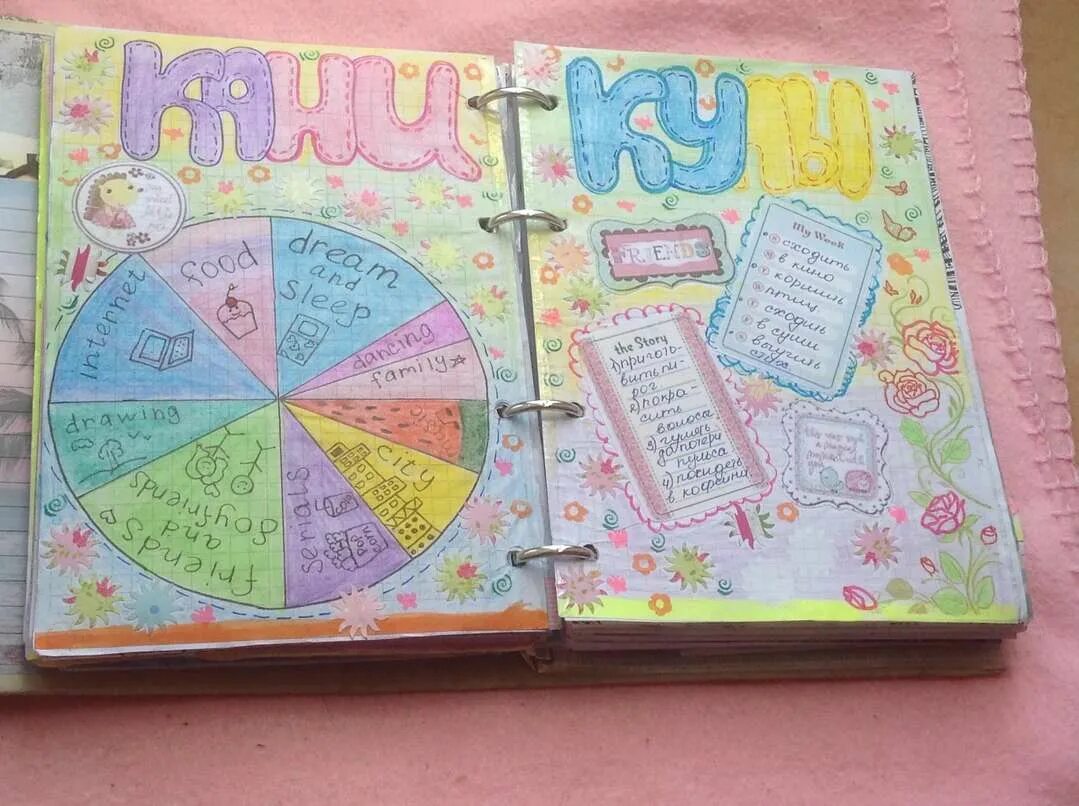 КАНИ
КУЛЫ
food
dream
and
sleep
Internet
dancing
family
drawing
city
serials
friends
and
boyfriends
FRIENDS
My Week
сходить
в кино
кормить
птиц
сходить
в суши
выучить
the Story
1) пригото-
вить пи-
рог
2) покра-
сить
волосы
3) гулять
до потери
пульса
4) посидеть
в кофейне